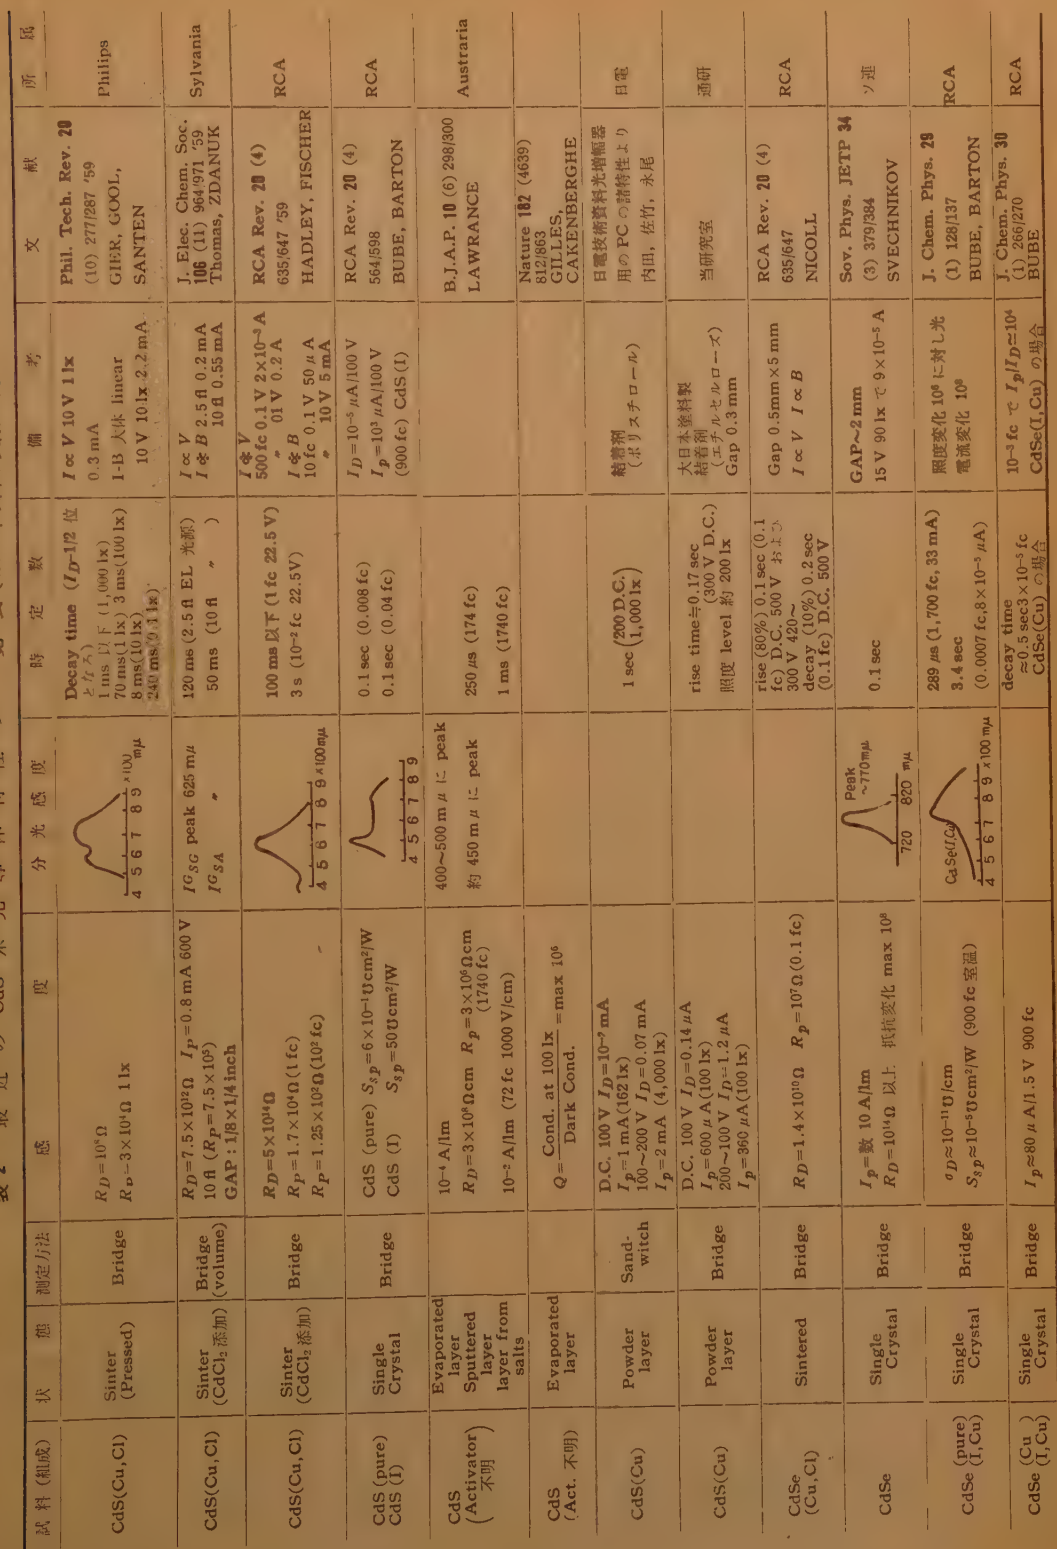 表 2 最近の CdS 系光
試料(組成) 状態 測定方法 感度 分光感度 時定数 備考 文献 所属
CdS(Cu,Cl)
Sinter
(Pressed)
Bridge
R_D=10⁸Ω
R_p=3×10⁴Ω 1 lx
4 5 6 7 8 9 ×100
mμ
Decay time (I_D-1/2 位
となる)
1 ms 以下 (1,000 lx)
70 ms(1 lx) 3 ms(100 lx)
8 ms(10 lx)
240 ms(0.1 lx)
I ∝ V 10 V 1 lx
0.3 mA
I-B 大体 linear
10 V 10 lx 2.2 mA
Phil. Tech. Rev. 20
(10) 277/287 '59
GIER, GOOL,
SANTEN
Philips
CdS(Cu,Cl)
Sinter
(CdCl₂ 添加)
Bridge
(volume)
R_D=7.5×10¹²Ω I_P=0.8 mA 600 V
10 fl (R_P=7.5×10⁵)
GAP : 1/8×1/4 inch
IG_SG peak 625 mμ
IG_SA 〃
120 ms (2.5 fl EL 光源)
50 ms (10 fl 〃 )
I ∝ V
I ≑ B 2.5 fl 0.2 mA
10 fl 0.55 mA
J. Elec. Chem. Soc.
106 (11) 964/971 '59
Thomas, ZDANUK
Sylvania
CdS(Cu,Cl)
Sinter
(CdCl₂ 添加)
Bridge
R_D=5×10¹⁴Ω
R_p=1.7×10⁴Ω (1 fc)
R_p=1.25×10²Ω (10² fc)
4 5 6 7 8 9 ×100mμ
100 ms 以下 (1 fc 22.5 V)
3 s (10⁻² fc 22.5V)
I ≑ V
500 fc 0.1 V 2×10⁻³ A
〃 01 V 0.2 A
I ≑ B
10 fc 0.1 V 50 μA
〃 10 V 5 mA
RCA Rev. 20 (4)
635/647 '59
HADLEY, FISCHER
RCA
CdS (pure)
CdS (I)
Single
Crystal
Bridge
CdS (pure) S_sp=6×10⁻¹℧cm²/W
CdS (I) S_sp=50℧cm²/W
4 5 6 7 8 9
0.1 sec (0.008 fc)
0.1 sec (0.04 fc)
I_D=10⁻⁵ μA/100 V
I_p=10³ μA/100 V
(900 fc) CdS (I)
RCA Rev. 20 (4)
564/598
BUBE, BARTON
RCA
CdS
(Activator)
不明
Evaporated
layer
Sputtered
layer
layer from
salts
10⁻⁴ A/lm
R_D=3×10⁸Ωcm R_p=3×10⁶Ωcm
(1740 fc)
10⁻² A/lm (72 fc 1000 V/cm)
400~500 mμ に peak
約 450 mμ に peak
250 μs (174 fc)
1 ms (1740 fc)
B.J.A.P. 10 (6) 298/300
LAWRANCE
Austraria
CdS
(Act. 不明)
Evaporated
layer
Q= Cond. at 100 lx / Dark Cond. =max 10⁶
Nature 182 (4639)
812/863
GILLES,
CAKENBERGHE
CdS(Cu)
Powder
layer
Sand-
witch
D.C. 100 V I_D=10⁻⁷ mA
I_p=1 mA(162 lx)
100~200 V I_D=0.07 mA
I_p=2 mA (4,000 lx)
1 sec (200 D.C.
1,000 lx)
結着剤
(ポリスチロール)
日電技術資料光増幅器
用の PC の諸特性より
内田, 佐竹, 永尾
日電
CdS(Cu)
Powder
layer
Bridge
D.C. 100 V I_D=0.14 μA
I_p=600 μA(100 lx)
200~100 V I_D=1.2 μA
I_p=360 μA(100 lx)
rise time≒0.17 sec
(300 V D.C.)
照度 level 約 200 lx
大日本塗料製
結着剤
(エチルセルローズ)
Gap 0.3 mm
当研究室
通研
CdSe
(Cu,Cl)
Sintered
Bridge
R_D=1.4×10¹⁰Ω R_p=10⁷Ω(0.1 fc)
rise (80%) 0.1 sec (0.1
fc) D.C. 500 V および
300 V 420~
decay (10%) 0.2 sec
(0.1 fc) D.C. 500 V
Gap 0.5mm×5 mm
I ∝ V I ∝ B
RCA Rev. 20 (4)
635/647
NICOLL
RCA
CdSe
Single
Crystal
Bridge
I_p=数 10 A/lm
R_D=10¹⁴Ω 以上 抵抗変化 max 10⁸
Peak
~770mμ
720 820 mμ
0.1 sec
GAP~2 mm
15 V 90 lx で 9×10⁻⁵ A
Sov. Phys. JETP 34
(3) 379/384
SVECHNIKOV
ソ連
CdSe (pure)
(I,Cu)
Single
Crystal
Bridge
σ_D≈10⁻¹¹℧/cm
S_sp≈10⁻⁵℧cm²/W (900 fc 室温)
CaSe(I,Cu)
4 5 6 7 8 9 ×100 mμ
289 μs (1,700 fc, 33 mA)
3.4 sec
(0.0007 fc,8×10⁻³ μA)
照度変化 10⁶ に対し光
電流変化 10⁹
J. Chem. Phys. 29
(1) 128/137
BUBE, BARTON
RCA
CdSe (Cu )
(I,Cu)
Single
Crystal
Bridge
I_p≈80 μA/1.5 V 900 fc
decay time
≈0.5 sec3×10⁻⁵ fc
CdSe(Cu) の場合
10⁻³ fc で I_p/I_D≃10⁴
CdSe(I,Cu) の場合
J. Chem. Phys. 30
(1) 266/270
BUBE
RCA